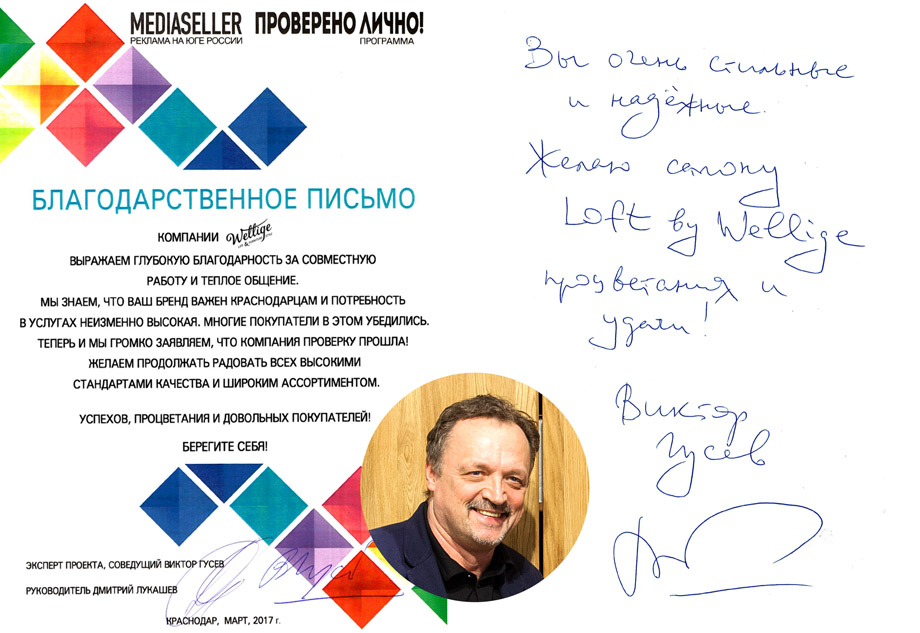 MEDIASELLER
РЕКЛАМА НА ЮГЕ РОССИИ
ПРОВЕРЕНО ЛИЧНО!
ПРОГРАММА
БЛАГОДАРСТВЕННОЕ ПИСЬМО
КОМПАНИИ Wellige
ВЫРАЖАЕМ ГЛУБОКУЮ БЛАГОДАРНОСТЬ ЗА СОВМЕСТНУЮ
РАБОТУ И ТЕПЛОЕ ОБЩЕНИЕ.
МЫ ЗНАЕМ, ЧТО ВАШ БРЕНД ВАЖЕН КРАСНОДАРЦАМ И ПОТРЕБНОСТЬ
В УСЛУГАХ НЕИЗМЕННО ВЫСОКАЯ. МНОГИЕ ПОКУПАТЕЛИ В ЭТОМ УБЕДИЛИСЬ.
ТЕПЕРЬ И МЫ ГРОМКО ЗАЯВЛЯЕМ, ЧТО КОМПАНИЯ ПРОВЕРКУ ПРОШЛА!
ЖЕЛАЕМ ПРОДОЛЖАТЬ РАДОВАТЬ ВСЕХ ВЫСОКИМИ
СТАНДАРТАМИ КАЧЕСТВА И ШИРОКИМ АССОРТИМЕНТОМ.
УСПЕХОВ, ПРОЦВЕТАНИЯ И ДОВОЛЬНЫХ ПОКУПАТЕЛЕЙ!
БЕРЕГИТЕ СЕБЯ!
ЭКСПЕРТ ПРОЕКТА, СОВЕДУЩИЙ ВИКТОР ГУСЕВ
РУКОВОДИТЕЛЬ ДМИТРИЙ ЛУКАШЕВ
КРАСНОДАР, МАРТ, 2017 г.
Вы очень стильные
и надёжные.
Желаю салону
Loft by Wellige
процветания и
удачи!
Виктор
Гусев